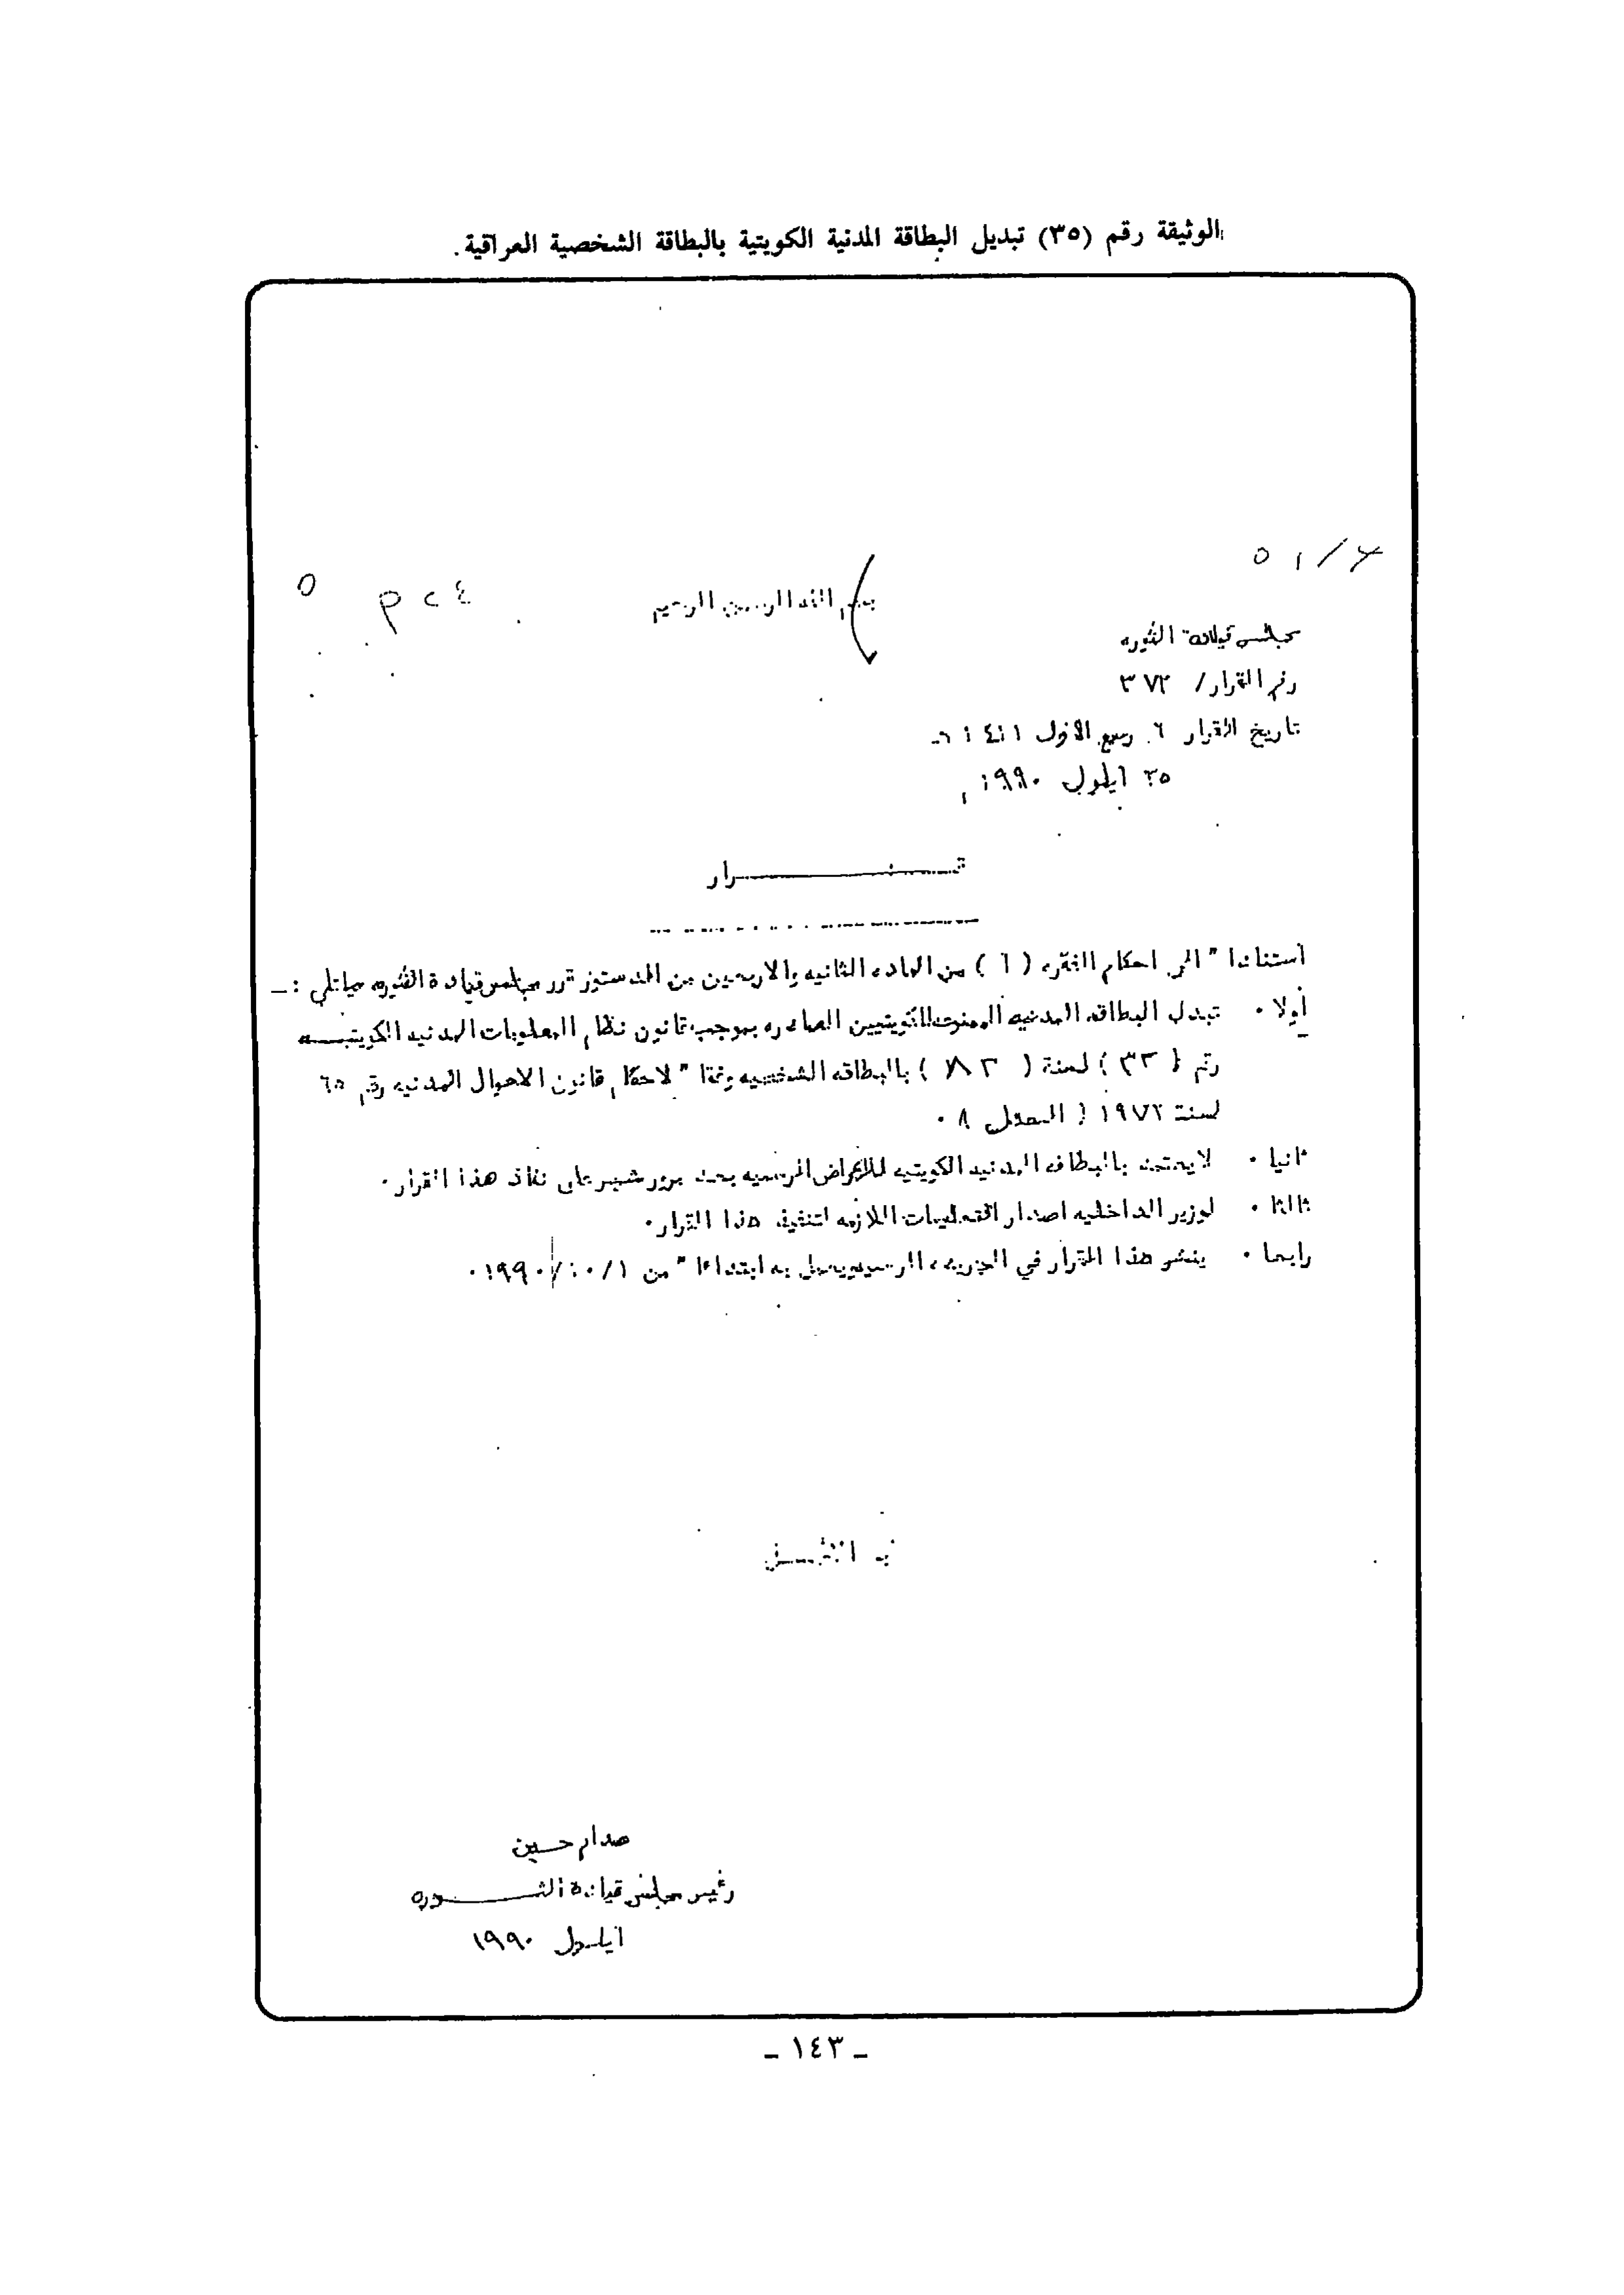 الوثيقة رقم (٣٥) تبديل البطاقة المدنية الكويتية بالبطاقة الشخصية العراقية.
بسم الله الرحمن الرحيم
مجلس قيادة الثوره
رقم القرار / ٣٧٢
تاريخ القرار ٦ ربيع الاول ١٤١١ هـ
٢٥ ايلول ١٩٩٠
قــــــــرار
استنادا" الى احكام الفقره (أ) من الماده الثانيه والاربعين من الدستور قرر مجلس قيادة الثوره مايلي :ـ
أولا . تبدل البطاقه المدنيه الممنوحه للكويتيين الصادره بموجب قانون نظام المعلومات المدنيه الكويتيـــه
رقم (٣٢) لسنة ( ٨٢ ) بالبطاقه الشخصيه وفقا" لاحكام قانون الاحوال المدنيه رقم ٦٥
لسنة ١٩٧٢ ( المعدل ) .
ثانيا . لايعتد بالبطاقه المدنيه الكويتيه للاغراض الرسميه بعد مرور شهر على نفاذ هذا القرار .
ثالثا . لوزير الداخليه اصدار التعليمات اللازمه لتنفيذ هذا القرار .
رابعا . ينشر هذا القرار في الجريده الرسميه ويعمل به ابتداءا" من ١/١٠/١٩٩٠ .
صدام حسين
رئيس مجلس قيادة الثـــــــوره
ايلـول ١٩٩٠
ـ ١٤٣ ـ